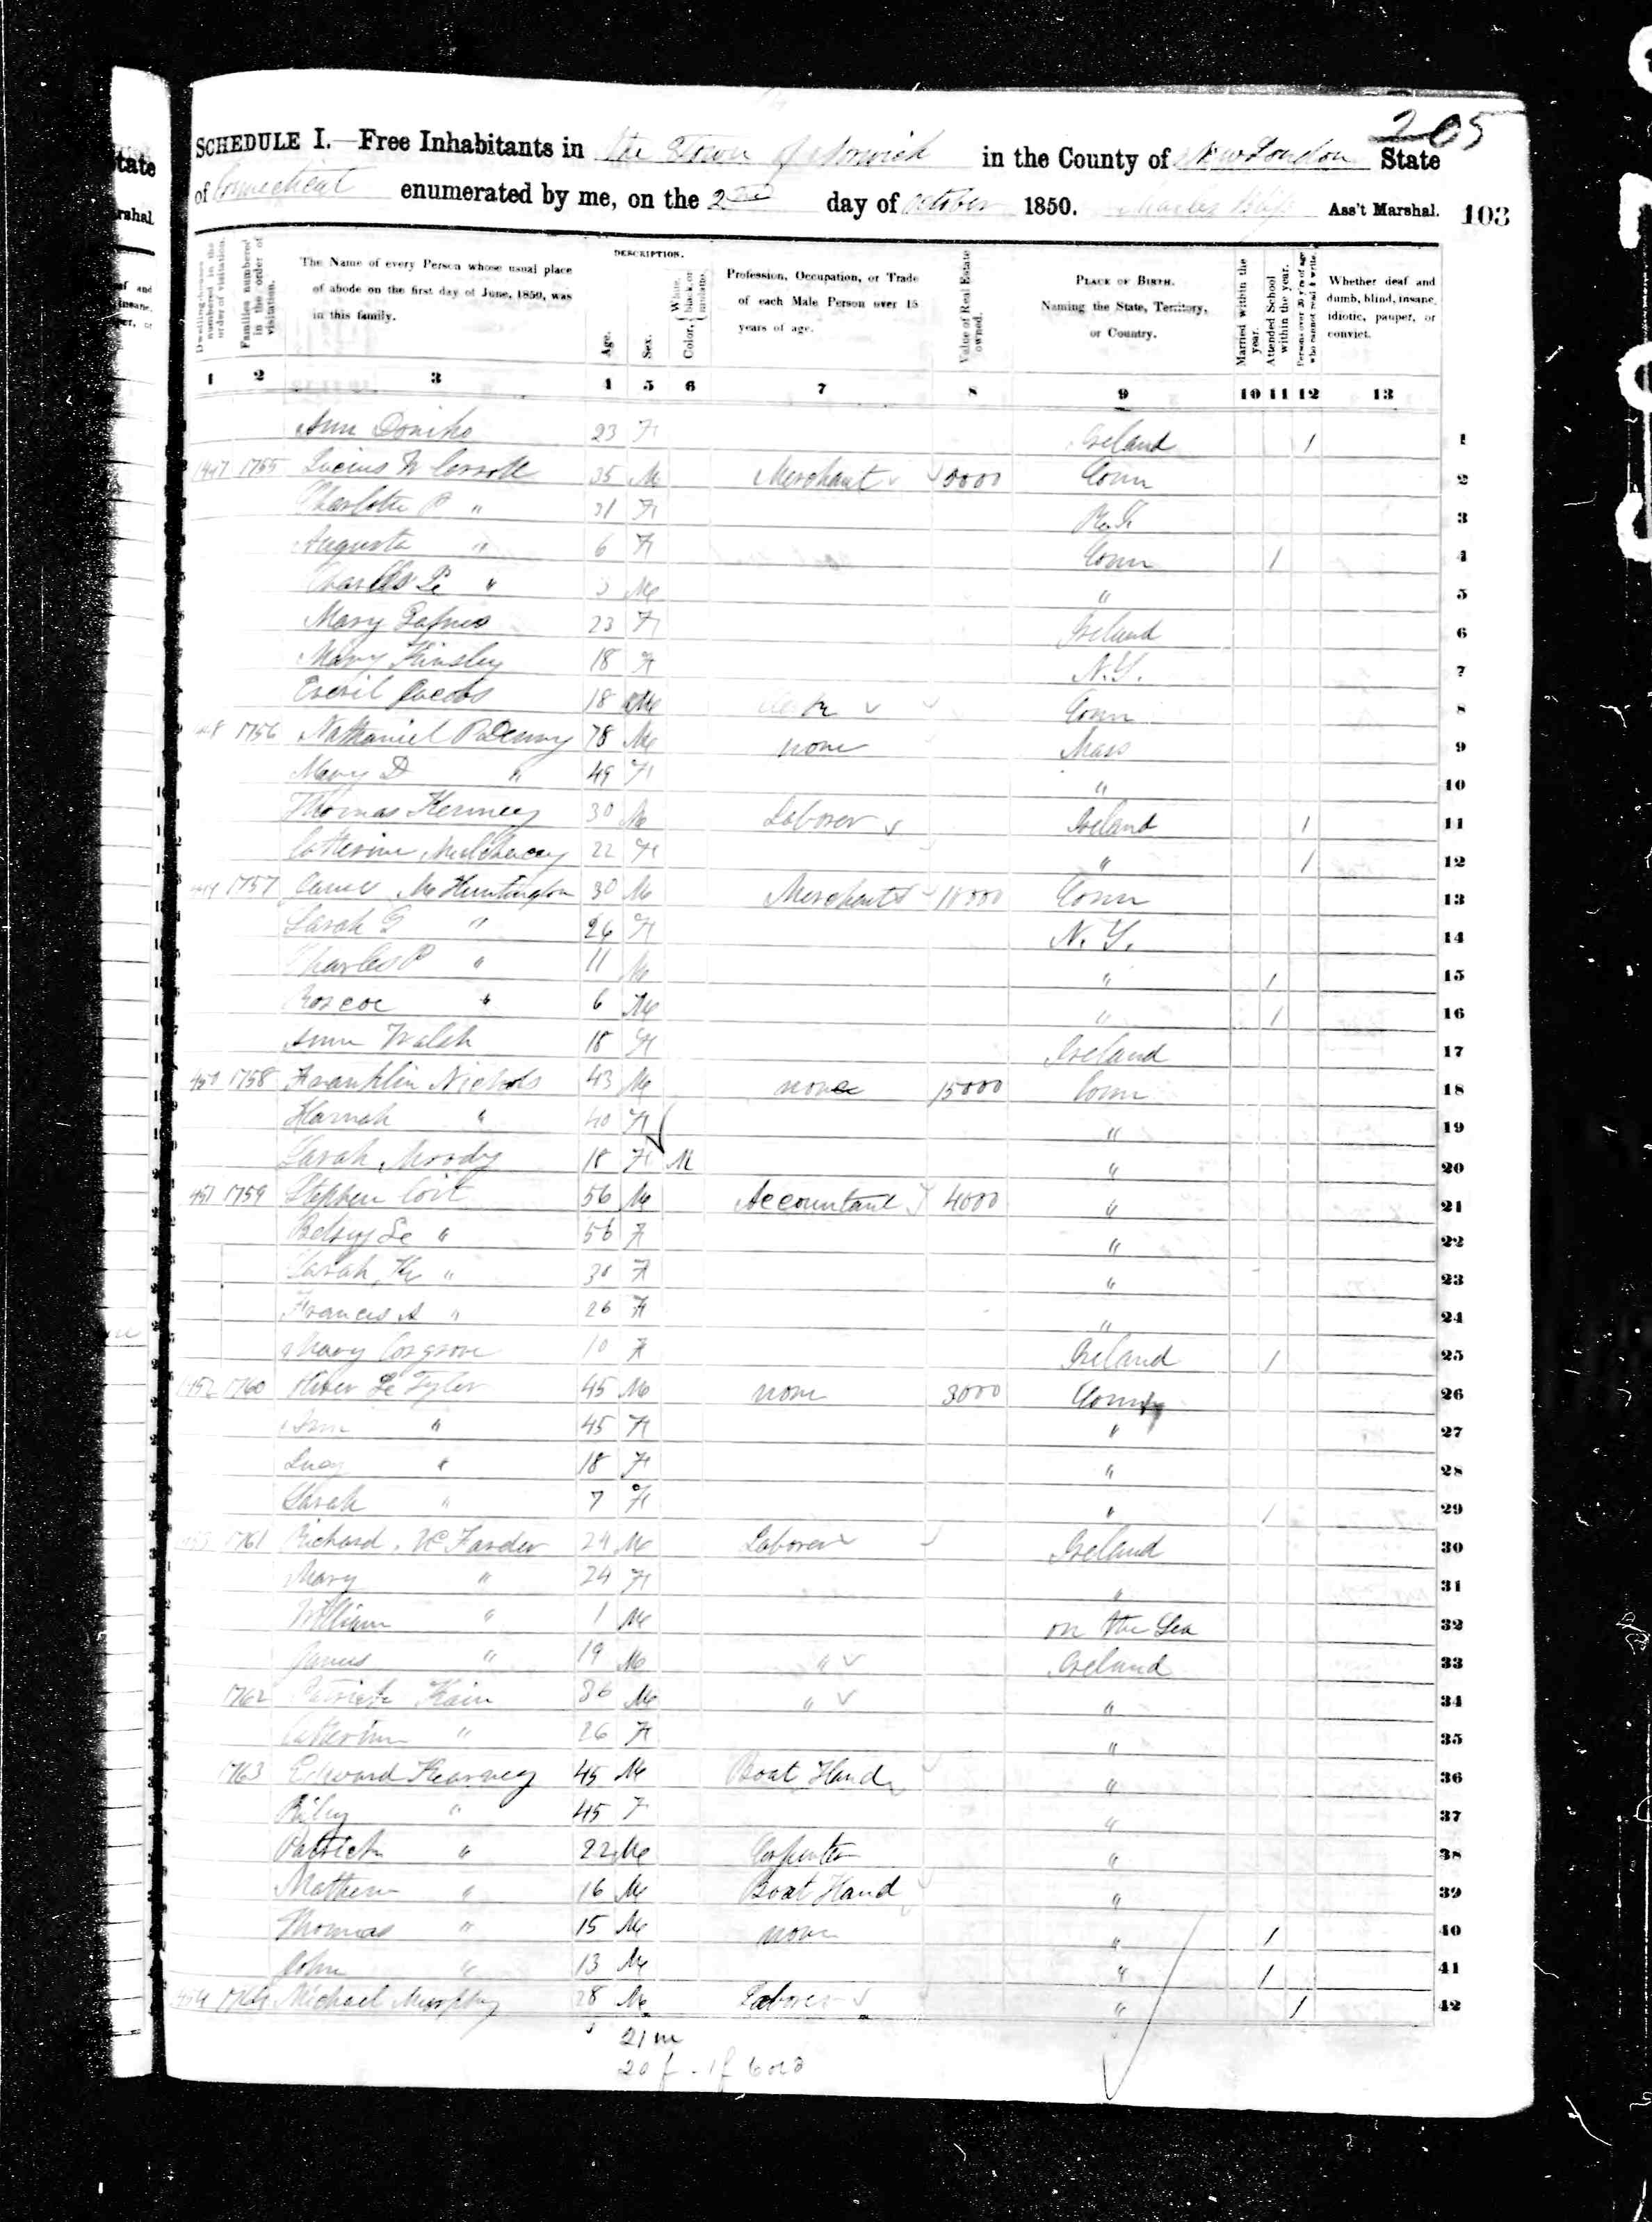 205
SCHEDULE I.—Free Inhabitants in the Town of Norwich in the County of New London State
of Connecticut enumerated by me, on the 2nd day of October 1850. Charles Ass't Marshal. 103
Dwelling-houses numbered in the order of visitation.
Families numbered in the order of visitation.
The Name of every Person whose usual place of abode on the first day of June, 1850, was in this family.
DESCRIPTION.
Age.
Sex.
Color, { White, black, or mulatto.
Profession, Occupation, or Trade of each Male Person over 15 years of age.
Value of Real Estate owned.
PLACE OF BIRTH. Naming the State, Territory, or Country.
Married within the year.
Attended School within the year.
Persons over 20 y'rs of age who cannot read & write.
Whether deaf and dumb, blind, insane, idiotic, pauper, or convict.
1 2 3 4 5 6 7 8 9 10 11 12 13
Ann 23 F Ireland 1 1
1755 Lucius W Carroll 35 M Merchant Conn 2
Charlotte P " 31 F R.I. 3
Augusta " 6 F Conn 1 4
Charles " 3 M " 5
Mary 23 F Ireland 6
Mary Kinsley 18 F N.Y. 7
Jacobs 18 M Conn 8
1756 Nathaniel P Denny 78 M none Mass 9
Mary D " 49 F " 10
Thomas Kenney 30 M Laborer Ireland 1 11
Catherine 22 F " 1 12
1757 James M Huntington 30 M Merchant Conn 13
Sarah G " 26 F N.Y. 14
Charles P " 11 M " 1 15
Roscoe " 6 M " 1 16
Ann Walsh 18 F Ireland 17
450 1758 Franklin Nichols 43 M none 15000 Conn 18
Hannah " 40 F " 19
Sarah Moody 18 F M " 20
451 1759 Stephen Coit 56 M Accountant 4000 " 21
Betsey " 56 F " 22
Sarah " 30 F " 23
Frances A " 26 F " 24
Mary Cosgrove 10 F Ireland 1 25
1452 1760 Oliver Tyler 45 M none 3000 Conn 26
Ann " 45 F " 27
Lucy " 18 F " 28
Sarah " 7 F " 1 29
1761 Richard 24 M Laborer Ireland 30
Mary " 24 F " 31
William " 1 M on the Sea 32
James " 19 M " Ireland 33
1762 Patrick Kain 36 M " " 34
Catherine " 26 F " 35
1763 Edward Kearney 45 M Boat Hand " 36
" 45 F " 37
Patrick " 22 M Carpenter " 38
Mathew " 16 M Boat Hand " 39
Thomas " 15 M none " 1 40
John " 13 M " 1 41
1764 Michael Murphy 28 M Laborer " 1 42
21 m
20 f - 1 f